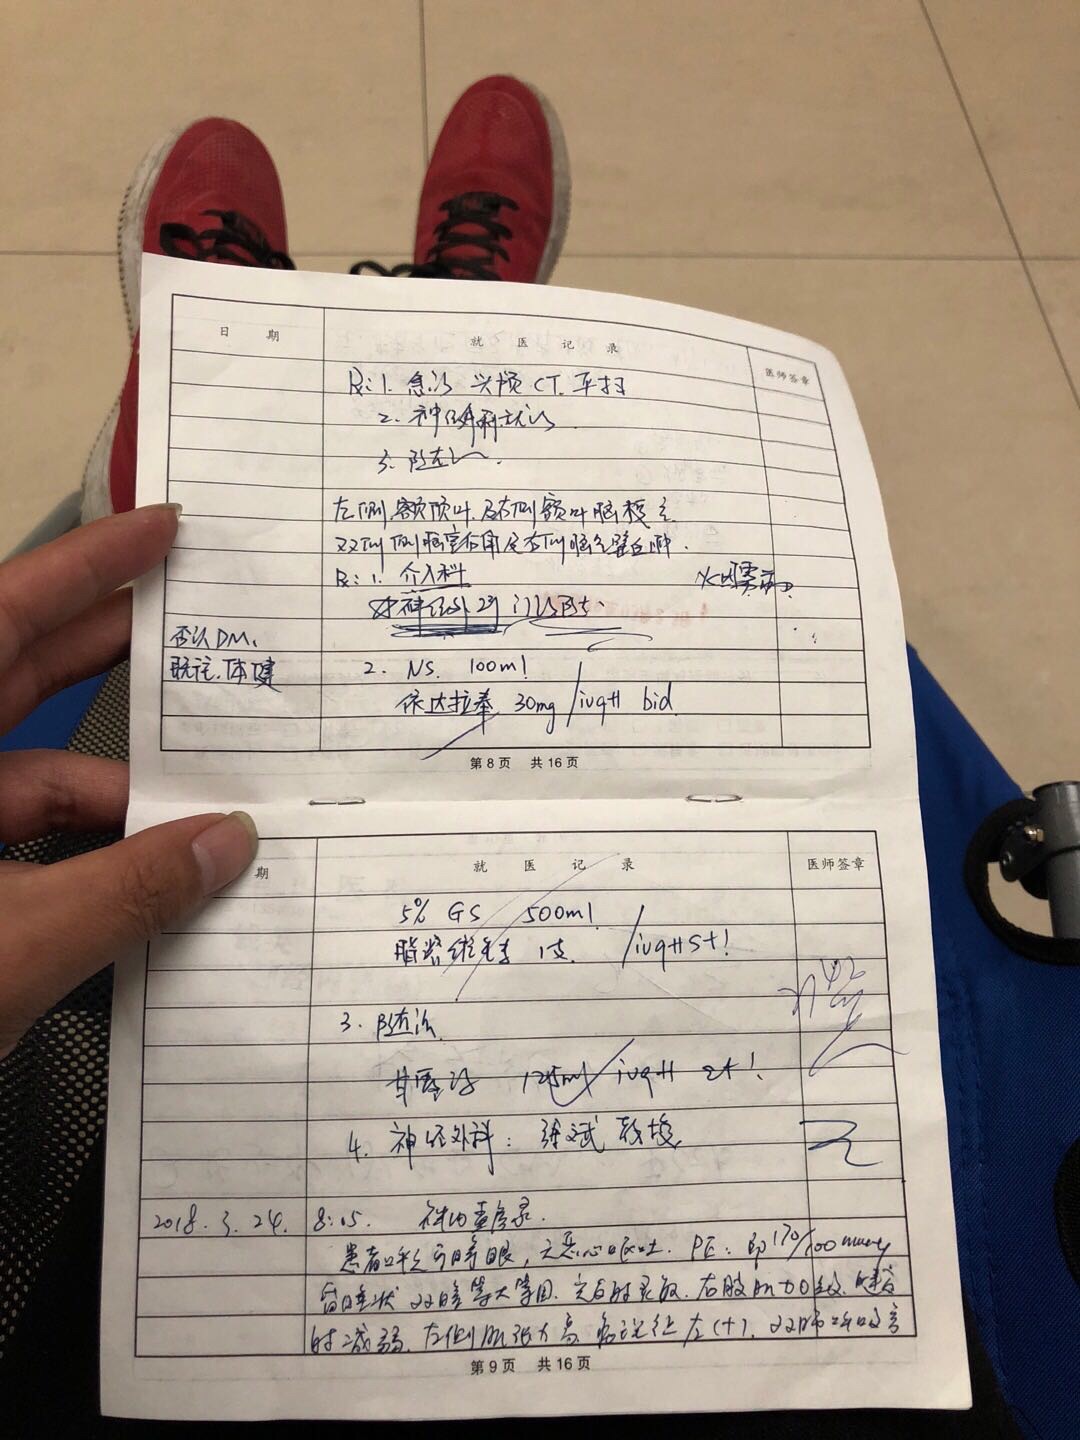 日 期 就 医 记 录 医师签章
Rx: 1. 急诊 头颅 CT 平扫
2. 神经科就诊
3. 随诊
左侧额顶叶及右侧额叶脑梗
双侧侧脑室后角及右侧脑
Rx: 1. 介入科
神经外科门诊随诊
否认DM、
既往体健 2. NS. 100ml
依达拉奉 30mg / ivgtt bid
第8页 共16页
期 就 医 记 录 医师签章
5% GS 500ml
脂溶维生素 1支 / ivgtt st!
3. 随诊
甘露醇 125ml / ivgtt st!
4. 神经外科: 徐文武 教授
2018. 3. 24. 8:15. 神内查房录.
患者呼之可睁眼, 无恶心呕吐. PE: BP 170/100mmHg
昏睡状 双瞳等大等圆. 光反射灵敏. 右肢肌力0级.
减弱. 左侧肌张力高 病理征 左(+). 双肺呼吸音
第9页 共16页